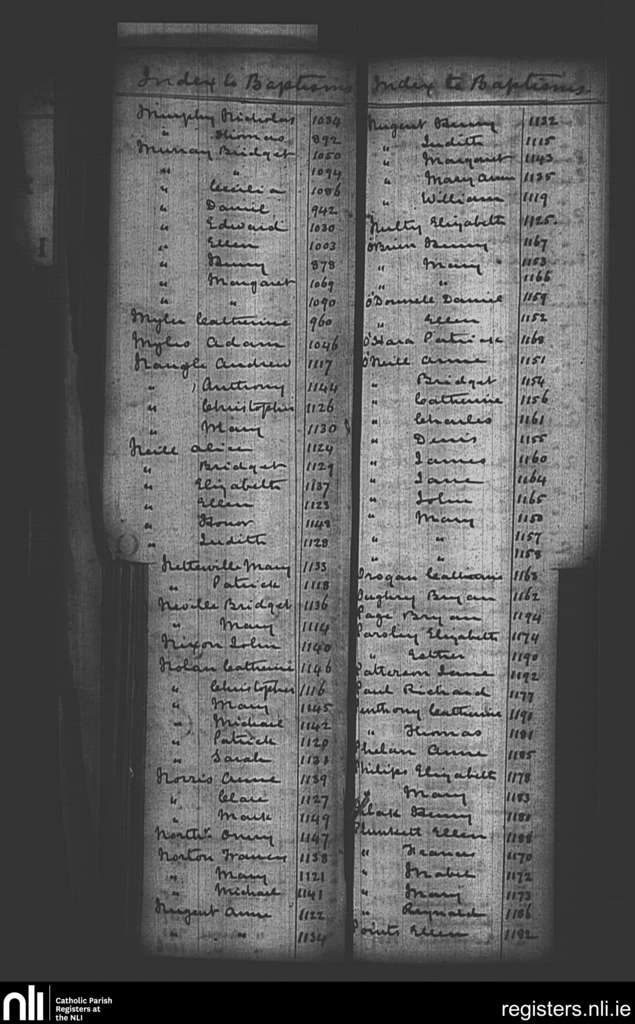 Index to Baptisms
Murphy Nicholas 1034
" Thomas 892
Murray Bridget 1050
" " 1094
" Cecilia 1086
" Daniel 942
" Edward 1030
" Ellen 1003
" Henry 878
" Margaret 1069
" " 1090
Myler Catherine 960
Myles Adam 1046
Nangle Andrew 1117
" Anthony 1144
" Christopher 1126
" Mary 1130
Neill Alice 1124
" Bridget 1129
" Elizabeth 1137
" Ellen 1123
" Honor 1148
" Judith 1128
Netteville Mary 1133
" Patrick 1118
Neville Bridget 1136
" Mary 1114
Nixon John 1140
Nolan Catherine 1146
" Christopher 1116
" Mary 1145
" Michael 1142
" Patrick 1120
" Sarah
Norris Anne 1139
" Clare 1127
" Mark 1149
North 1147
Norton Frances 1138
" Mary 1121
" Michael 1141
Nugent Anne 1122
" " 1134
Index to Baptisms
Nugent Henry 1132
" Judith 1115
" Margaret 1143
" Mary Anne 1135
" William 1119
Nulty Elizabeth 1125
O'Brien Henry 1167
" Mary 1153
" " 1166
O'Donnell Daniel 1159
" Ellen 1152
O'Hara Patrick 1168
O'Neill Anne 1151
" Bridget 1154
" Catherine 1156
" Charles 1161
" Denis 1155
" James 1160
" Jane 1164
" John 1165
" Mary 1150
" " 1157
" " 1158
Catherine 1163
Bryan 1162
Page Bryan 1194
Parsley Elizabeth 1174
" Esther 1190
Patterson Jane 1192
Paul Richard 1177
Catherine 1191
" Thomas 1181
Phelan Anne 1185
Philips Elizabeth 1178
" Mary 1183
Henry 1180
Plunkett Ellen 1188
" Frances 1170
" Mabel 1172
" Mary 1173
" Reynald 1186
Points Ellen 1182
nli
Catholic Parish
Registers at
the NLI
registers.nli.ie